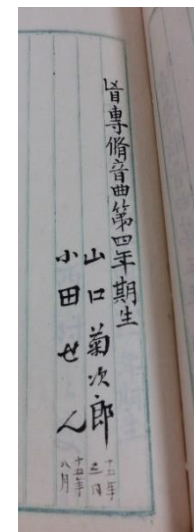 盲專脩音曲第四年期生
山口菊次郎
十五年
三月
小田せん
十五年
八月